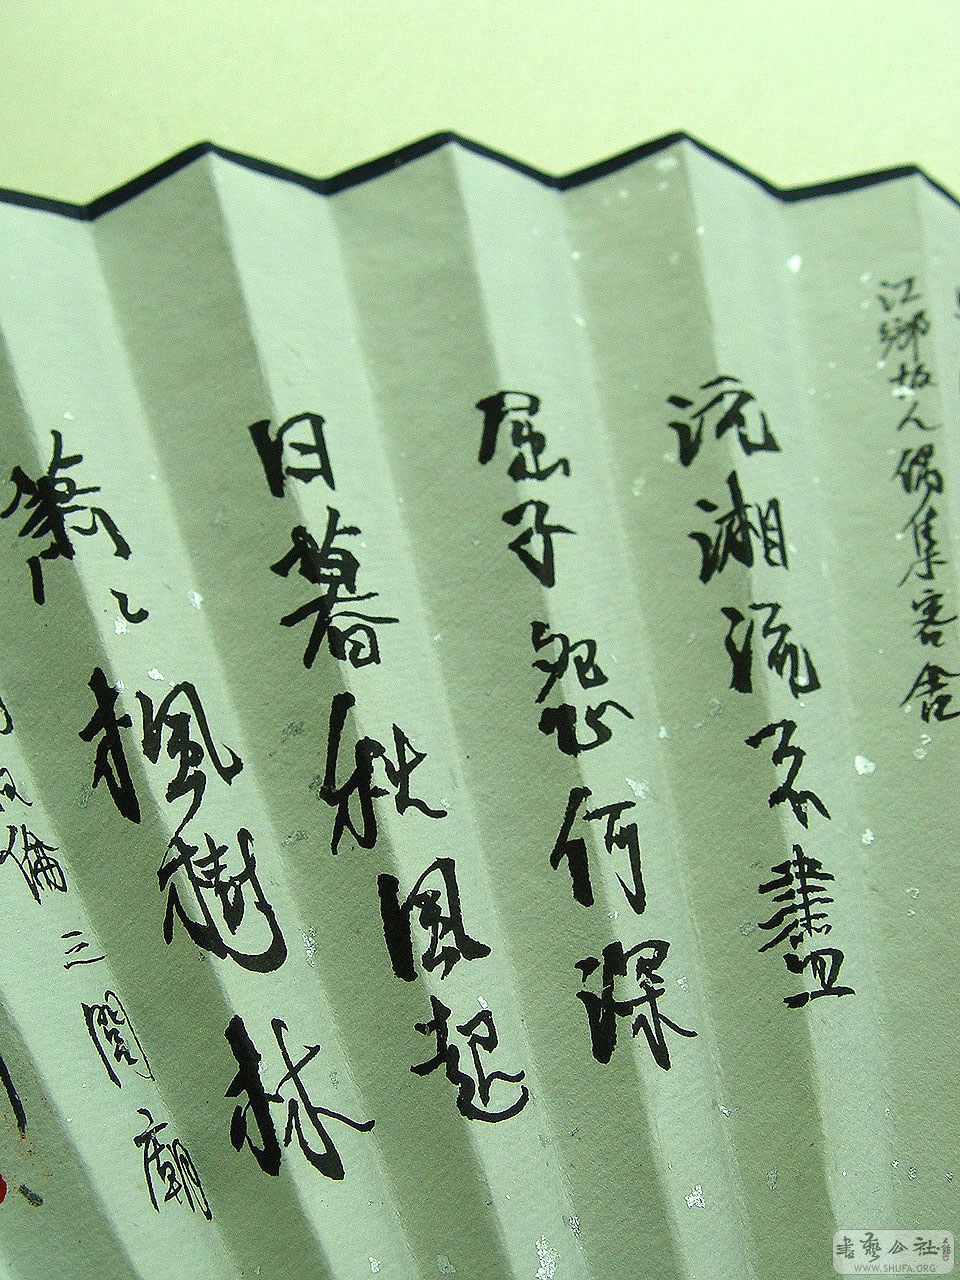 江鄉故人偶集客舍
沅湘流不盡
屈子怨何深
日暮秋風起
蕭〻楓樹林
叔倫 三閭廟
書藝公社
WWW.SHUFA.ORG